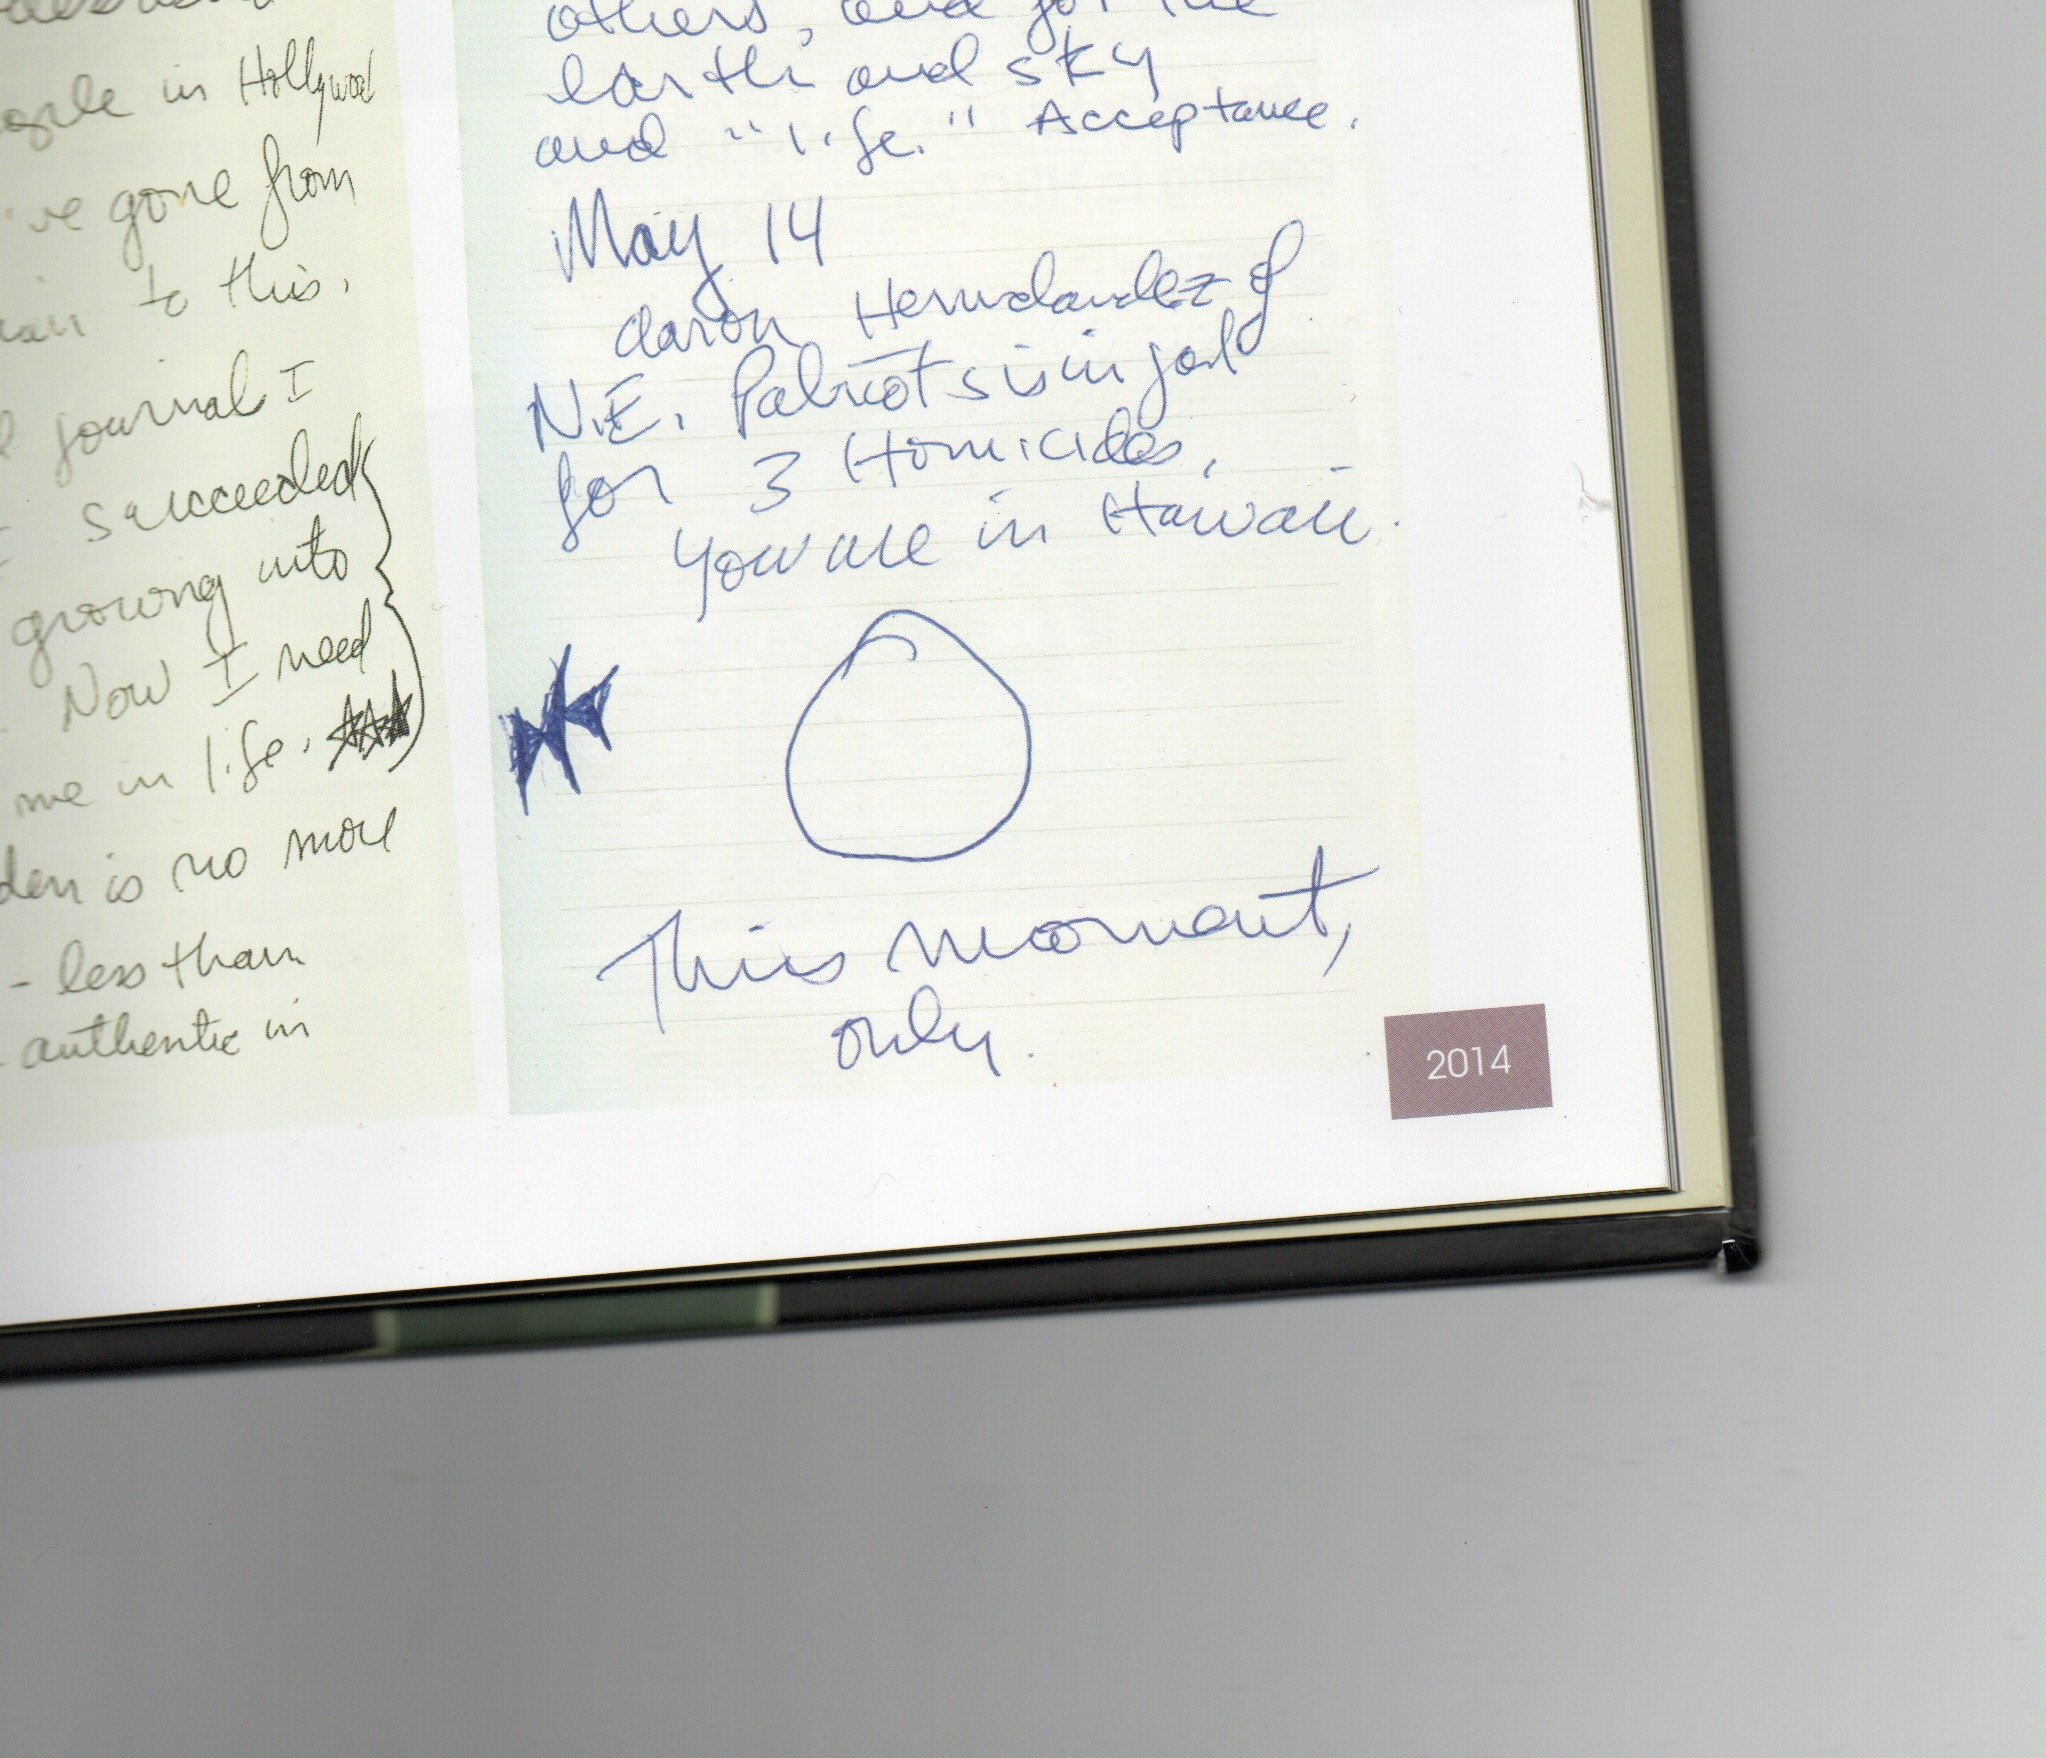 in Hollywood
've gone from
to this.
journal I
succeeded
growing into
Now I need
me in life.
is no more
- less than
authentic in
others, and for the
earth and sky
and "life." Acceptance.
May 14
Aaron Herndandez of
N.E. Patriots is in jail
for 3 Homicides.
You are in Hawaii.
This moment,
only.
2014